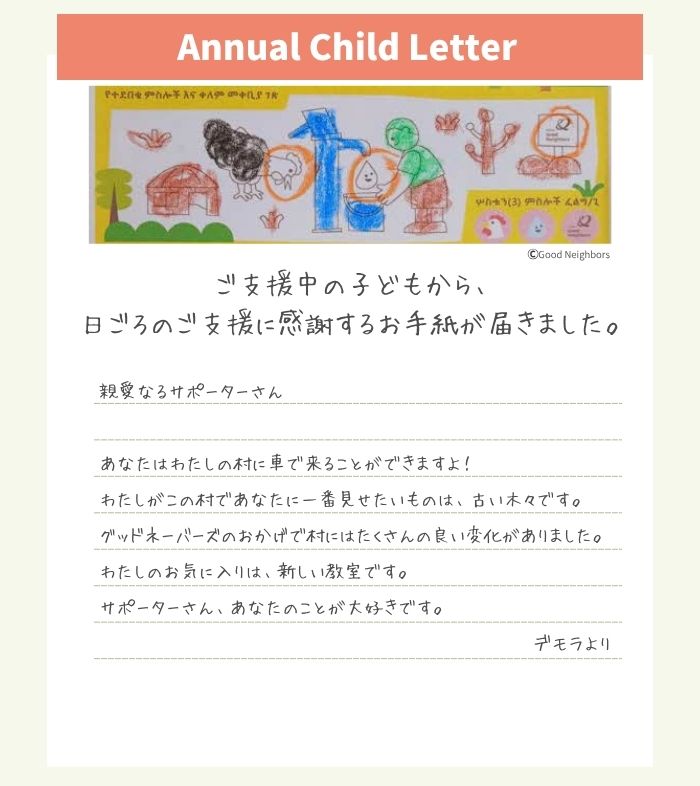 Annual Child Letter
የተደበቁ ምስሎች እና ቀለም መቀቢያ ገጽ
Good Neighbors
ሦስቱን(3) ምስሎች ፈልግ/ጊ
©Good Neighbors
ご支援中の子どもから、
日ごろのご支援に感謝するお手紙が届きました。
親愛なるサポーターさん
あなたはわたしの村に車で来ることができますよ!
わたしがこの村であなたに一番見せたいものは、古い木々です。
グッドネーバーズのおかげで村にはたくさんの良い変化がありました。
わたしのお気に入りは、新しい教室です。
サポーターさん、あなたのことが大好きです。
デモラより